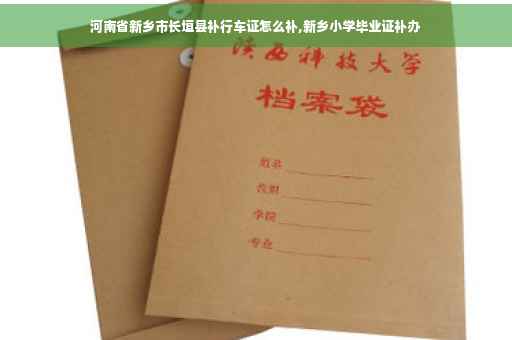 河南省新乡市长垣县补行车证怎么补,新乡小学毕业证补办
陕西科技大学
档案袋
姓名
学院
专业